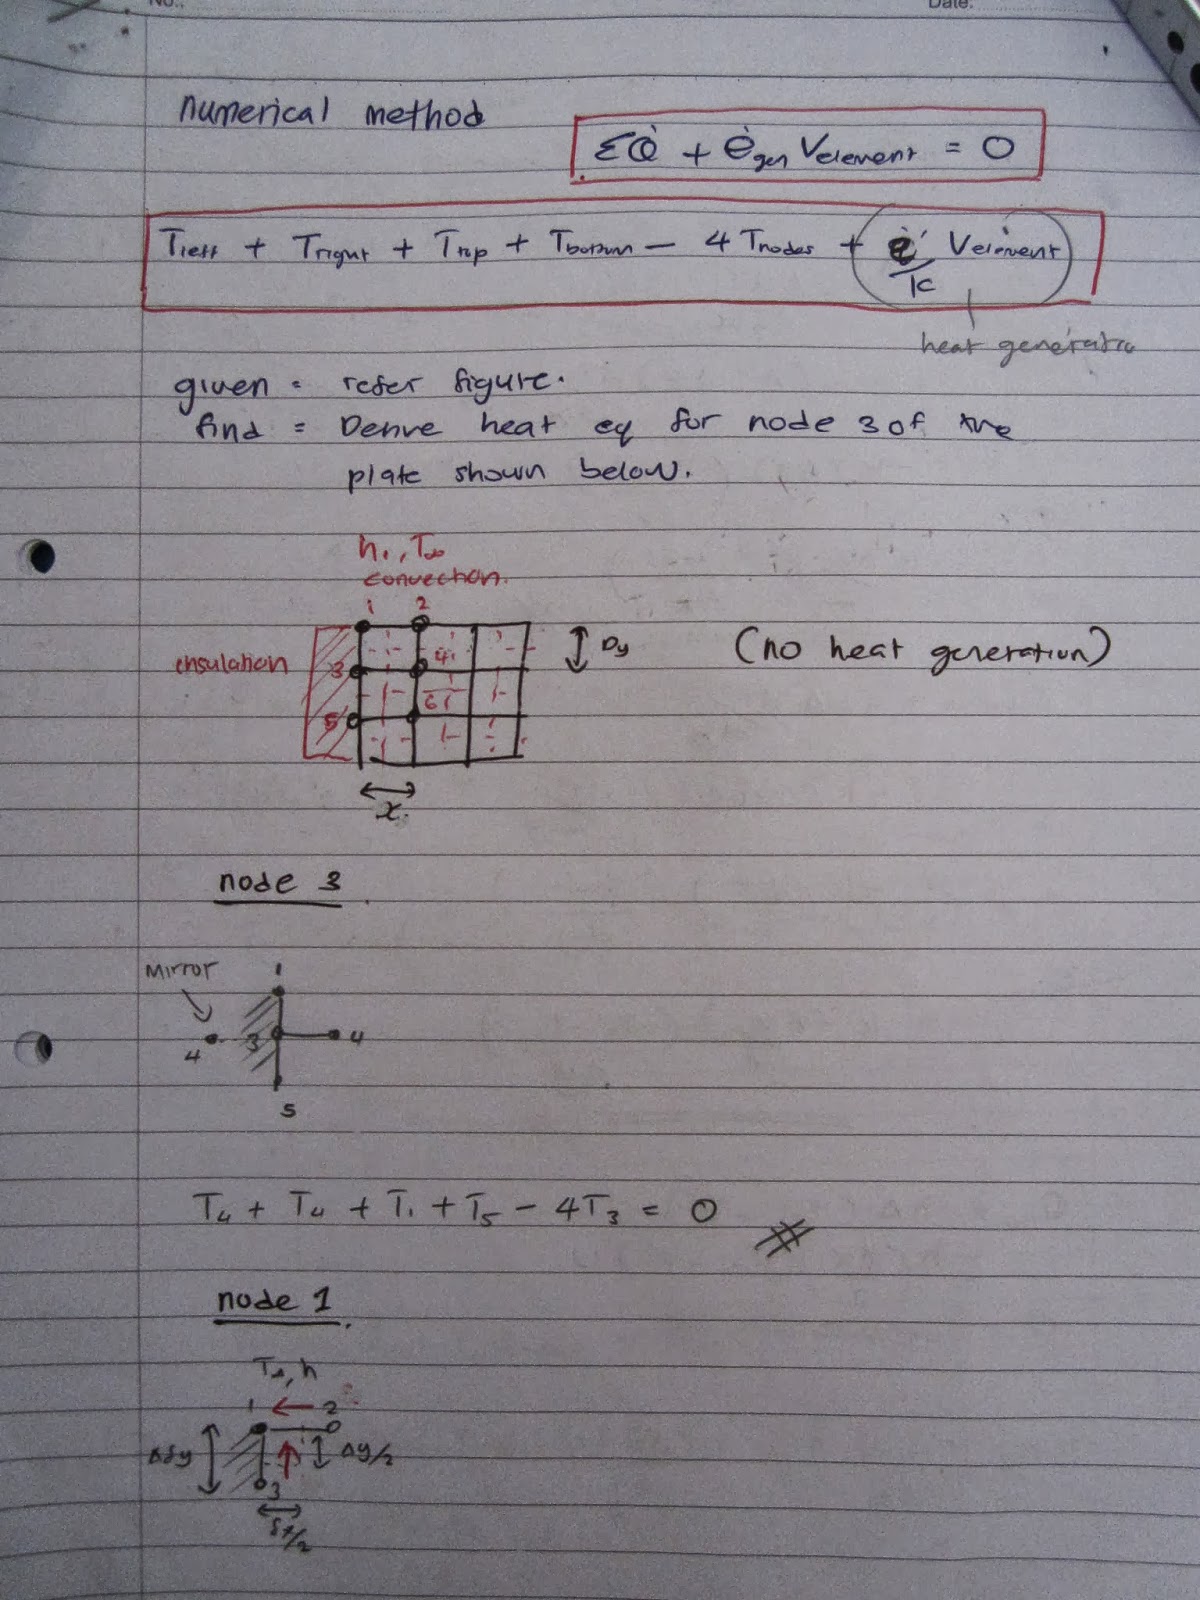 No.:
Date:
numerical method
ΣQ̇ + ėgen Velement = 0
Tleft + Tright + Ttop + Tbottom − 4 Tnodes + ė/k Velement
heat generatio
given = refer figure.
find = Derive heat eq for node 3 of the
plate shown below.
h₁, T∞
convection.
1 2
insulation 3 4 Dy (no heat generation)
5 6
x
node 3
Mirror 1
4 3 4
5
T₄ + T₄ + T₁ + T₅ − 4T₃ = 0
node 1
T∞, h
1 2
Δy/2
3